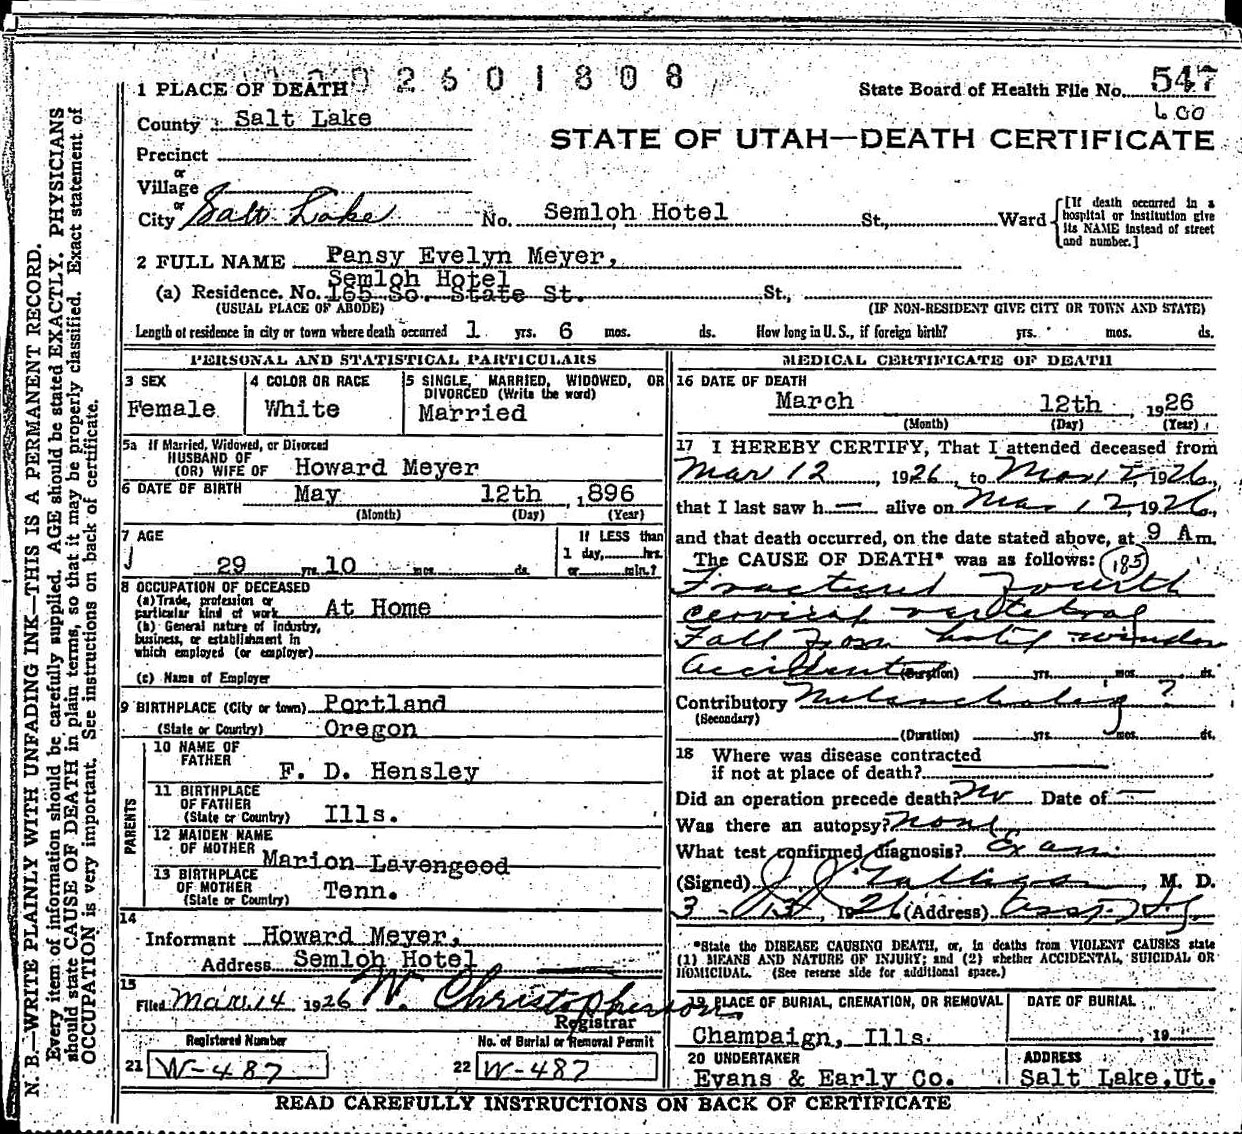 2601808
1 PLACE OF DEATH
State Board of Health File No. 547
County Salt Lake
STATE OF UTAH—DEATH CERTIFICATE
Precinct
or
Village
or
City Salt Lake No. Semloh Hotel St., Ward
[If death occurred in a hospital or institution give its NAME instead of street and number.]
2 FULL NAME Pansy Evelyn Meyer,
Semloh Hotel
(a) Residence. No. 165 So. State St. St.,
(USUAL PLACE OF ABODE) (IF NON-RESIDENT GIVE CITY OR TOWN AND STATE)
Length of residence in city or town where death occurred 1 yrs. 6 mos. ds. How long in U. S., if foreign birth? yrs. mos. ds.
PERSONAL AND STATISTICAL PARTICULARS
3 SEX
Female
4 COLOR OR RACE
White
5 SINGLE, MARRIED, WIDOWED, OR
DIVORCED (Write the word)
Married
5a If Married, Widowed, or Divorced
HUSBAND OF
(OR) WIFE OF Howard Meyer
6 DATE OF BIRTH May 12th , 1896
(Month) (Day) (Year)
7 AGE
29 yrs. 10 mos. ds.
If LESS than
1 day, hrs.
or min.?
8 OCCUPATION OF DECEASED
(a) Trade, profession or
particular kind of work At Home
(b) General nature of industry,
business, or establishment in
which employed (or employer)
(c) Name of Employer
9 BIRTHPLACE (City or town) Portland
(State or Country) Oregon
PARENTS
10 NAME OF
FATHER
F. D. Hensley
11 BIRTHPLACE
OF FATHER
(State or Country) Ills.
12 MAIDEN NAME
OF MOTHER
Marion Lavengood
13 BIRTHPLACE
OF MOTHER
(State or Country) Tenn.
14
Informant Howard Meyer,
Address Semloh Hotel
15
Filed Mar. 14 1926 W. Christopherson
Registrar
Registered Number No. of Burial or Removal Permit
21 W-487 22 W-487
MEDICAL CERTIFICATE OF DEATH
16 DATE OF DEATH
March 12th , 1926
(Month) (Day) (Year)
17 I HEREBY CERTIFY, That I attended deceased from
Mar 12 , 1926, to Mar 12 1926,
that I last saw h— alive on Mar 12, 1926,
and that death occurred, on the date stated above, at 9 Am.
The CAUSE OF DEATH* was as follows: 185
Fractured Fourth
cervical vertebrae
Fall from hotel window
Accident (Duration) yrs. mos. ds.
Contributory Melancholia ?
(Secondary)
(Duration) yrs. mos. ds.
18 Where was disease contracted
if not at place of death?
Did an operation precede death? No Date of —
Was there an autopsy? none
What test confirmed diagnosis? Exam.
(Signed) J. J. Galligan , M. D.
3-13, 1926 (Address)
*State the DISEASE CAUSING DEATH, or, in deaths from VIOLENT CAUSES state
(1) MEANS AND NATURE OF INJURY; and (2) whether ACCIDENTAL, SUICIDAL OR
HOMICIDAL. (See reverse side for additional space.)
19 PLACE OF BURIAL, CREMATION, OR REMOVAL
Champaign, Ills.
DATE OF BURIAL
, 19
20 UNDERTAKER
Evans & Early Co.
ADDRESS
Salt Lake, Ut.
READ CAREFULLY INSTRUCTIONS ON BACK OF CERTIFICATE
N. B.—WRITE PLAINLY WITH UNFADING INK—THIS IS A PERMANENT RECORD.
Every item of information should be carefully supplied. AGE should be stated EXACTLY. PHYSICIANS
should state CAUSE OF DEATH in plain terms, so that it may be properly classified. Exact statement of
OCCUPATION is very important. See instructions on back of certificate.